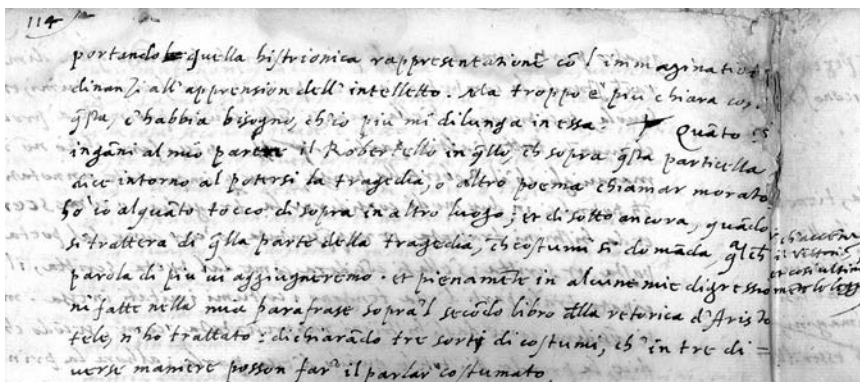 114
portando quella histrionica rappresentatione cō l'immaginatio
dinanzi all'apprension dell'intelletto. Ma troppo è più chiara cos,
q̄sta, c'habbia bisogno, ch'io più mi dilunga in essa. Quāto s
ingāni al mio parere il Robertello in q̄llo, ch̄ sopra q̄sta particella
dice intorno al potersi la tragedia, o altro poema chiamar morato
hò io alquāto tocco di sopra in altro luogo; et di sotto ancora, quādo
si trattera di q̄lla parte della tragedia, ch̄ costumi si domāda, q̄lch̄
parola di più vi aggiugneremo. et pienamēte in alcune mie digressio
ni fatte nella mia parafrase sopra'l secōdo libro della retorica d'Aristo
tele, n'hò trattato: dichiarādo tre sorti di costumi, ch' in tre di=
verse maniere posson far' il parlar costumato.